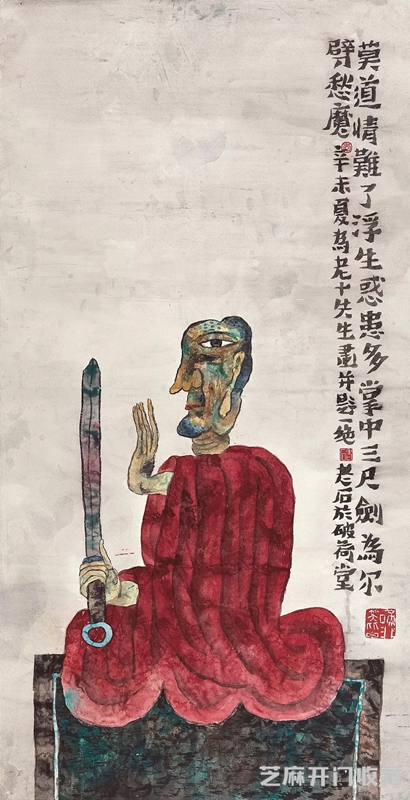 莫道情難了浮生惑患多掌中三尺劍為尔
劈愁魔辛未夏為老十先生畫并題一绝老石於破荷堂
芝麻开门收